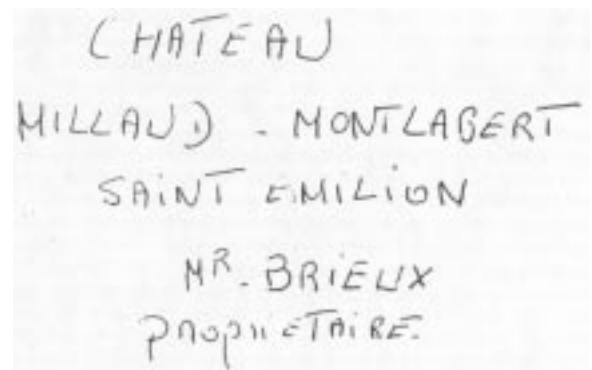 CHATEAU
MILLAUD - MONTLABERT
SAINT EMILION
MR. BRIEUX
PROPRIETAIRE.